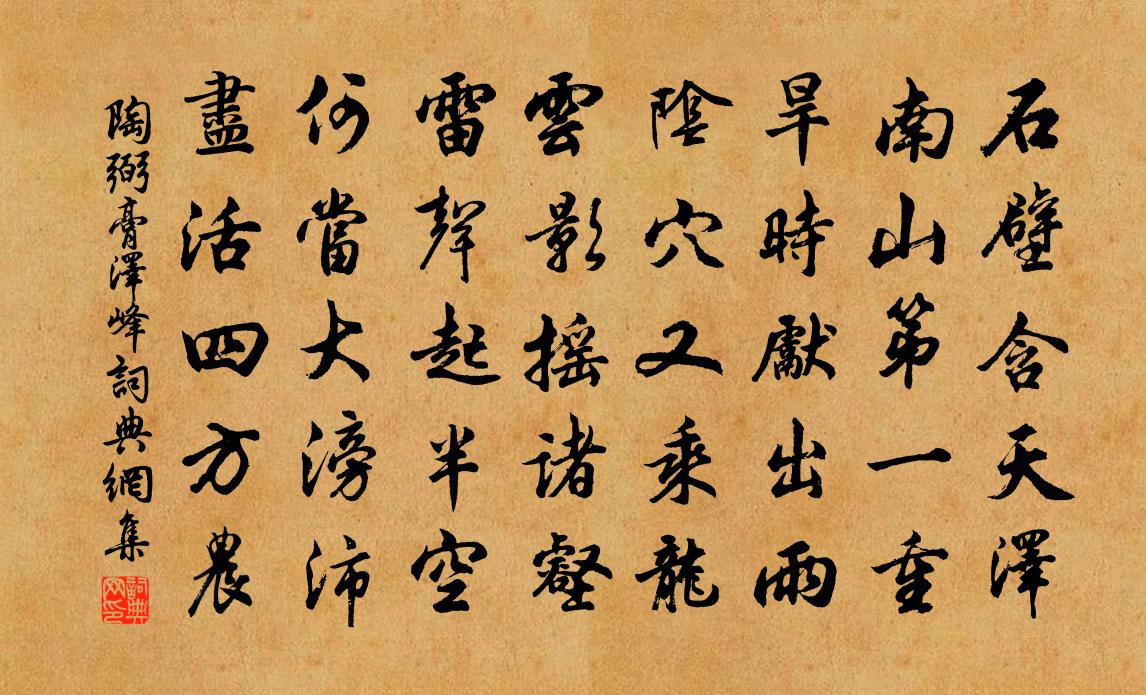 石壁含天澤
南山第一重
旱時獻出雨
陰穴又乘龍
雲影搖諸壑
雷聲起半空
何當大滂沛
盡活四方農
陶弼膏澤峰詞典網集
詞典网印